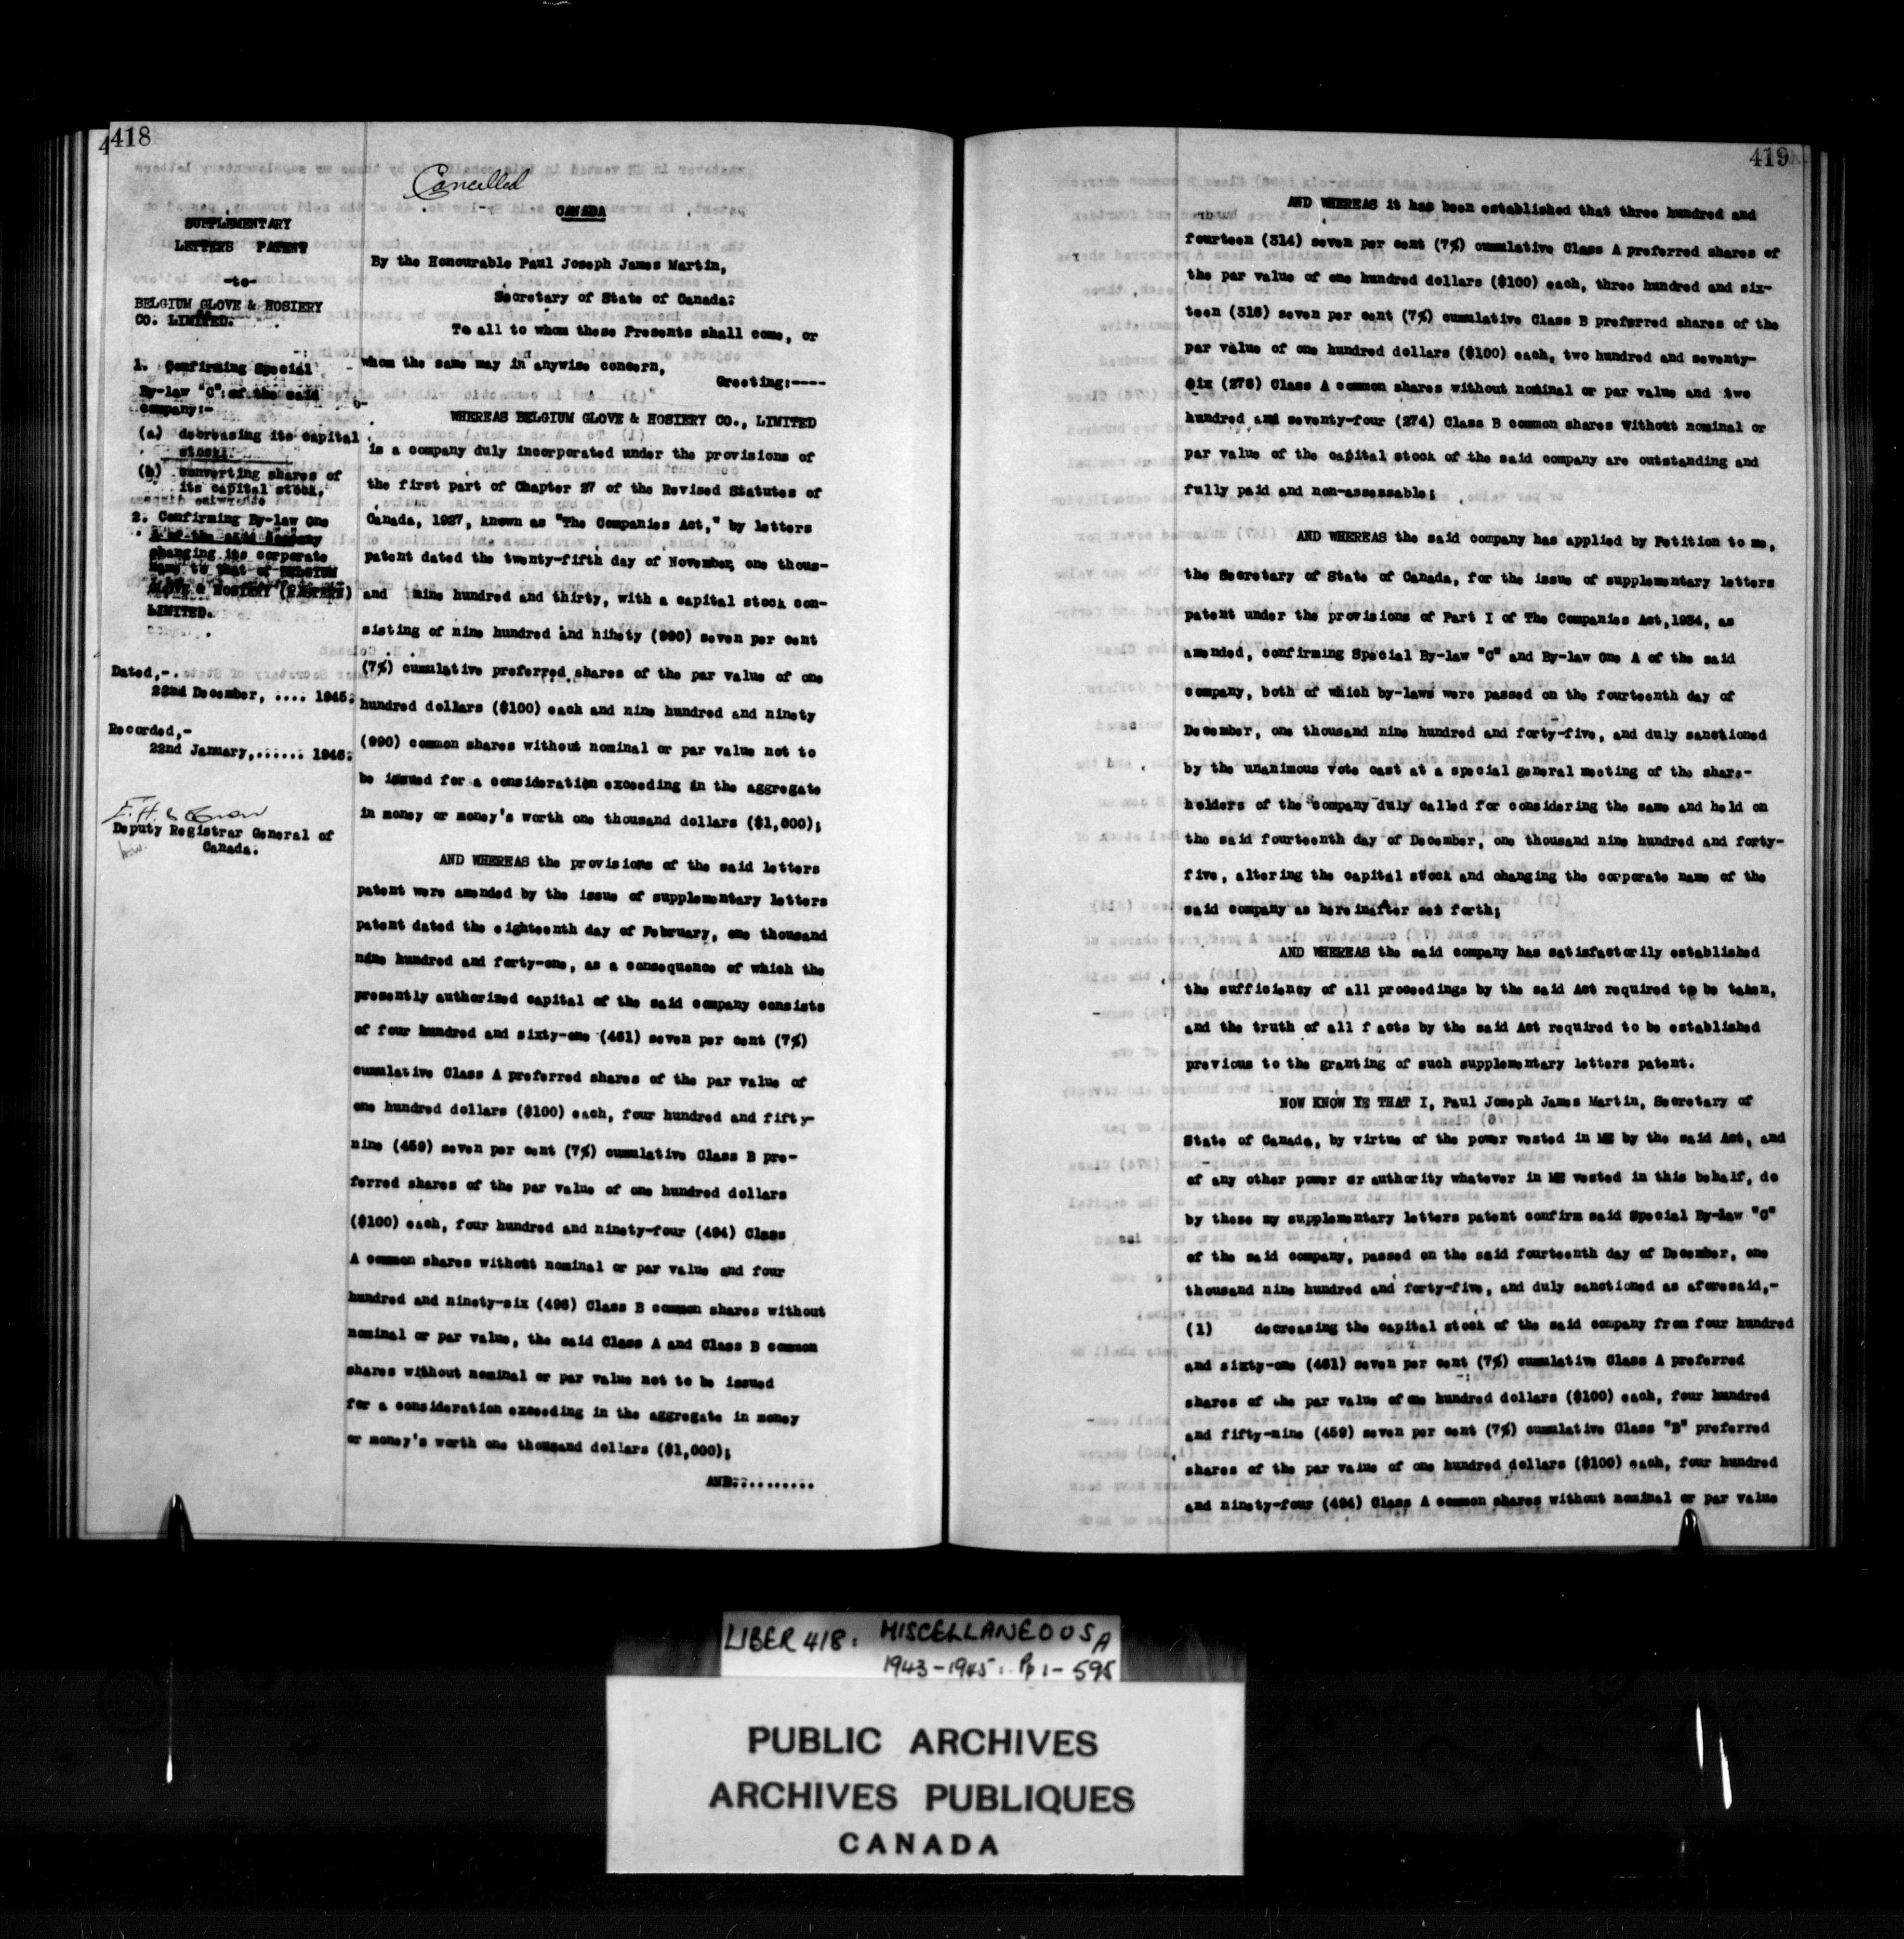 418
Cancelled
SUPPLEMENTARY
LETTERS PATENT
-to-
BELGIUM GLOVE & HOSIERY
CO. LIMITED.
1. Confirming Special
By-law "C" of the said
company:-
(a) decreasing its capital
stock;
(b) converting shares of
its capital stock,
2. Confirming By-law One
A of the said company
changing its corporate
name to that of BELGIUM
GLOVE & HOSIERY (EASTERN)
LIMITED.
Dated,-
22nd December, .... 1945.
Recorded,-
22nd January,...... 1946.
Deputy Registrar General of
Canada.
CANADA
By the Honourable Paul Joseph James Martin,
Secretary of State of Canada:
To all to whom these Presents shall come, or
whom the same may in anywise concern,
Greeting:----
WHEREAS BELGIUM GLOVE & HOSIERY CO., LIMITED
is a company duly incorporated under the provisions of
the first part of Chapter 27 of the Revised Statutes of
Canada, 1927, known as "The Companies Act," by letters
patent dated the twenty-fifth day of November, one thous-
and nine hundred and thirty, with a capital stock con-
sisting of nine hundred and ninety (990) seven per cent
(7%) cumulative preferred shares of the par value of one
hundred dollars ($100) each and nine hundred and ninety
(990) common shares without nominal or par value not to
be issued for a consideration exceeding in the aggregate
in money or money's worth one thousand dollars ($1,000);
AND WHEREAS the provisions of the said letters
patent were amended by the issue of supplementary letters
patent dated the eighteenth day of February, one thousand
nine hundred and forty-one, as a consequence of which the
presently authorized capital of the said company consists
of four hundred and sixty-one (461) seven per cent (7%)
cumulative Class A preferred shares of the par value of
one hundred dollars ($100) each, four hundred and fifty-
nine (459) seven per cent (7%) cumulative Class B pre-
ferred shares of the par value of one hundred dollars
($100) each, four hundred and ninety-four (494) Class
A common shares without nominal or par value and four
hundred and ninety-six (496) Class B common shares without
nominal or par value, the said Class A and Class B common
shares without nominal or par value not to be issued
for a consideration exceeding in the aggregate in money
or money's worth one thousand dollars ($1,000);
AND..........
419
AND WHEREAS it has been established that three hundred and
fourteen (314) seven per cent (7%) cumulative Class A preferred shares of
the par value of one hundred dollars ($100) each, three hundred and six-
teen (316) seven per cent (7%) cumulative Class B preferred shares of the
par value of one hundred dollars ($100) each, two hundred and seventy-
six (276) Class A common shares without nominal or par value and two
hundred and seventy-four (274) Class B common shares without nominal or
par value of the capital stock of the said company are outstanding and
fully paid and non-assessable;
AND WHEREAS the said company has applied by Petition to me,
the Secretary of State of Canada, for the issue of supplementary letters
patent under the provisions of Part I of The Companies Act,1934, as
amended, confirming Special By-law "C" and By-law One A of the said
company, both of which by-laws were passed on the fourteenth day of
December, one thousand nine hundred and forty-five, and duly sanctioned
by the unanimous vote cast at a special general meeting of the share-
holders of the company duly called for considering the same and held on
the said fourteenth day of December, one thousand nine hundred and forty-
five, altering the capital stock and changing the corporate name of the
said company as hereinafter set forth;
AND WHEREAS the said company has satisfactorily established
the sufficiency of all proceedings by the said Act required to be taken,
and the truth of all facts by the said Act required to be established
previous to the granting of such supplementary letters patent.
NOW KNOW YE THAT I, Paul Joseph James Martin, Secretary of
State of Canada, by virtue of the power vested in ME by the said Act, and
of any other power or authority whatever in ME vested in this behalf, do
by these my supplementary letters patent confirm said Special By-law "C"
of the said company, passed on the said fourteenth day of December, one
thousand nine hundred and forty-five, and duly sanctioned as aforesaid,-
(1) decreasing the capital stock of the said company from four hundred
and sixty-one (461) seven per cent (7%) cumulative Class A preferred
shares of the par value of one hundred dollars ($100) each, four hundred
and fifty-nine (459) seven per cent (7%) cumulative Class "B" preferred
shares of the par value of one hundred dollars ($100) each, four hundred
and ninety-four (494) Class A common shares without nominal or par value
LIBER 418: MISCELLANEOUS A
1943-1945: Pp 1-595
PUBLIC ARCHIVES
ARCHIVES PUBLIQUES
CANADA